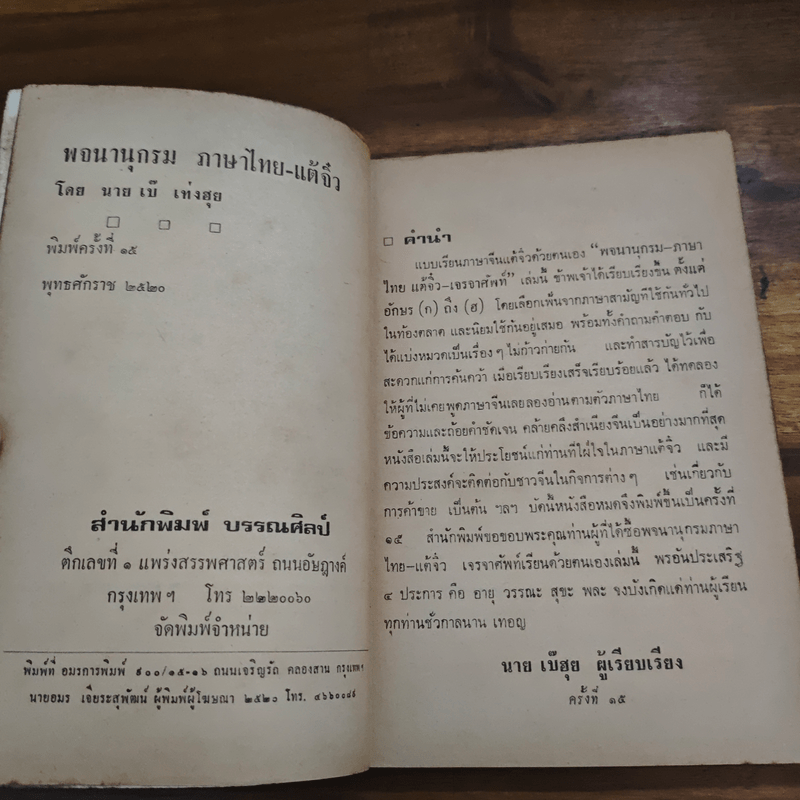 พจนานุกรม ภาษาไทย-แต้จิ๋ว
โดย นาย เบ๊ เท่งฮุย
พิมพ์ครั้งที่ ๑๕
พุทธศักราช ๒๕๒๐
สำนักพิมพ์ บรรณศิลป์
ตึกเลขที่ ๑ แพร่งสรรพศาสตร์ ถนนอัษฎางค์
กรุงเทพ ฯ โทร ๒๒๒๐๐๖๐
จัดพิมพ์จำหน่าย
พิมพ์ที่ อมรการพิมพ์ ๙๐๐/๑๕-๑๖ ถนนเจริญรัถ คลองสาน กรุงเทพฯ
นายอมร เจียระสุพัฒน์ ผู้พิมพ์ผู้โฆษณา ๒๕๒๐ โทร.
คำนำ
แบบเรียนภาษาจีนแต้จิ๋วด้วยตนเอง “พจนานุกรม-ภาษา
ไทย แต้จิ๋ว-เจรจาศัพท์” เล่มนี้ ข้าพเจ้าได้เรียบเรียงขึ้น ตั้งแต่
อักษร (ก) ถึง (ฮ) โดยเลือกเฟ้นจากภาษาสามัญที่ใช้กันทั่วไป
ในท้องตลาด และนิยมใช้กันอยู่เสมอ พร้อมทั้งคำถามคำตอบ กับ
ได้แบ่งหมวดเป็นเรื่อง ๆ ไม่ก้าวก่ายกัน และทำสารบัญไว้เพื่อ
สะดวกแก่การค้นคว้า เมื่อเรียบเรียงเสร็จเรียบร้อยแล้ว ได้ทดลอง
ให้ผู้ที่ไม่เคยพูดภาษาจีนเลยลองอ่านตามตัวภาษาไทย ก็ได้
ข้อความและถ้อยคำชัดเจน คล้ายคลึงสำเนียงจีนเป็นอย่างมากที่สุด
หนังสือเล่มนี้จะให้ประโยชน์แก่ท่านที่ใฝ่ใจในภาษาแต้จิ๋ว และมี
ความประสงค์จะติดต่อกับชาวจีนในกิจการต่าง ๆ เช่นเกี่ยวกับ
การค้าขาย เป็นต้น ฯลฯ บัดนี้หนังสือหมดจึงพิมพ์ขึ้นเป็นครั้งที่
๑๕ สำนักพิมพ์ขอขอบพระคุณท่านผู้ที่ได้ซื้อพจนานุกรมภาษา
ไทย-แต้จิ๋ว เจรจาศัพท์เรียนด้วยตนเองเล่มนี้ พรอันประเสริฐ
๔ ประการ คือ อายุ วรรณะ สุขะ พละ จงบังเกิดแด่ท่านผู้เรียน
ทุกท่านชั่วกาลนาน เทอญ
นาย เบ๊ฮุย ผู้เรียบเรียง
ครั้งที่ ๑๕